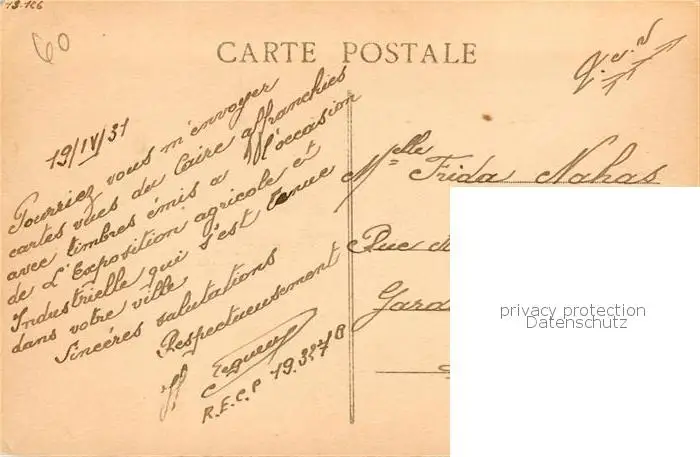 13.186
60
CARTE POSTALE
19/IV/31
Pourriez vous m'envoyer
cartes vues du Caire affranchies
avec timbres émis a l'occasion
de L'Exposition agricole et
Industrielle qui s'est tenue
dans votre ville
Sincéres salutations
Respectueusement
R.E.C.P 19.327B
Melle Frida Nahas
Rue
Gard
privacy protection
Datenschutz